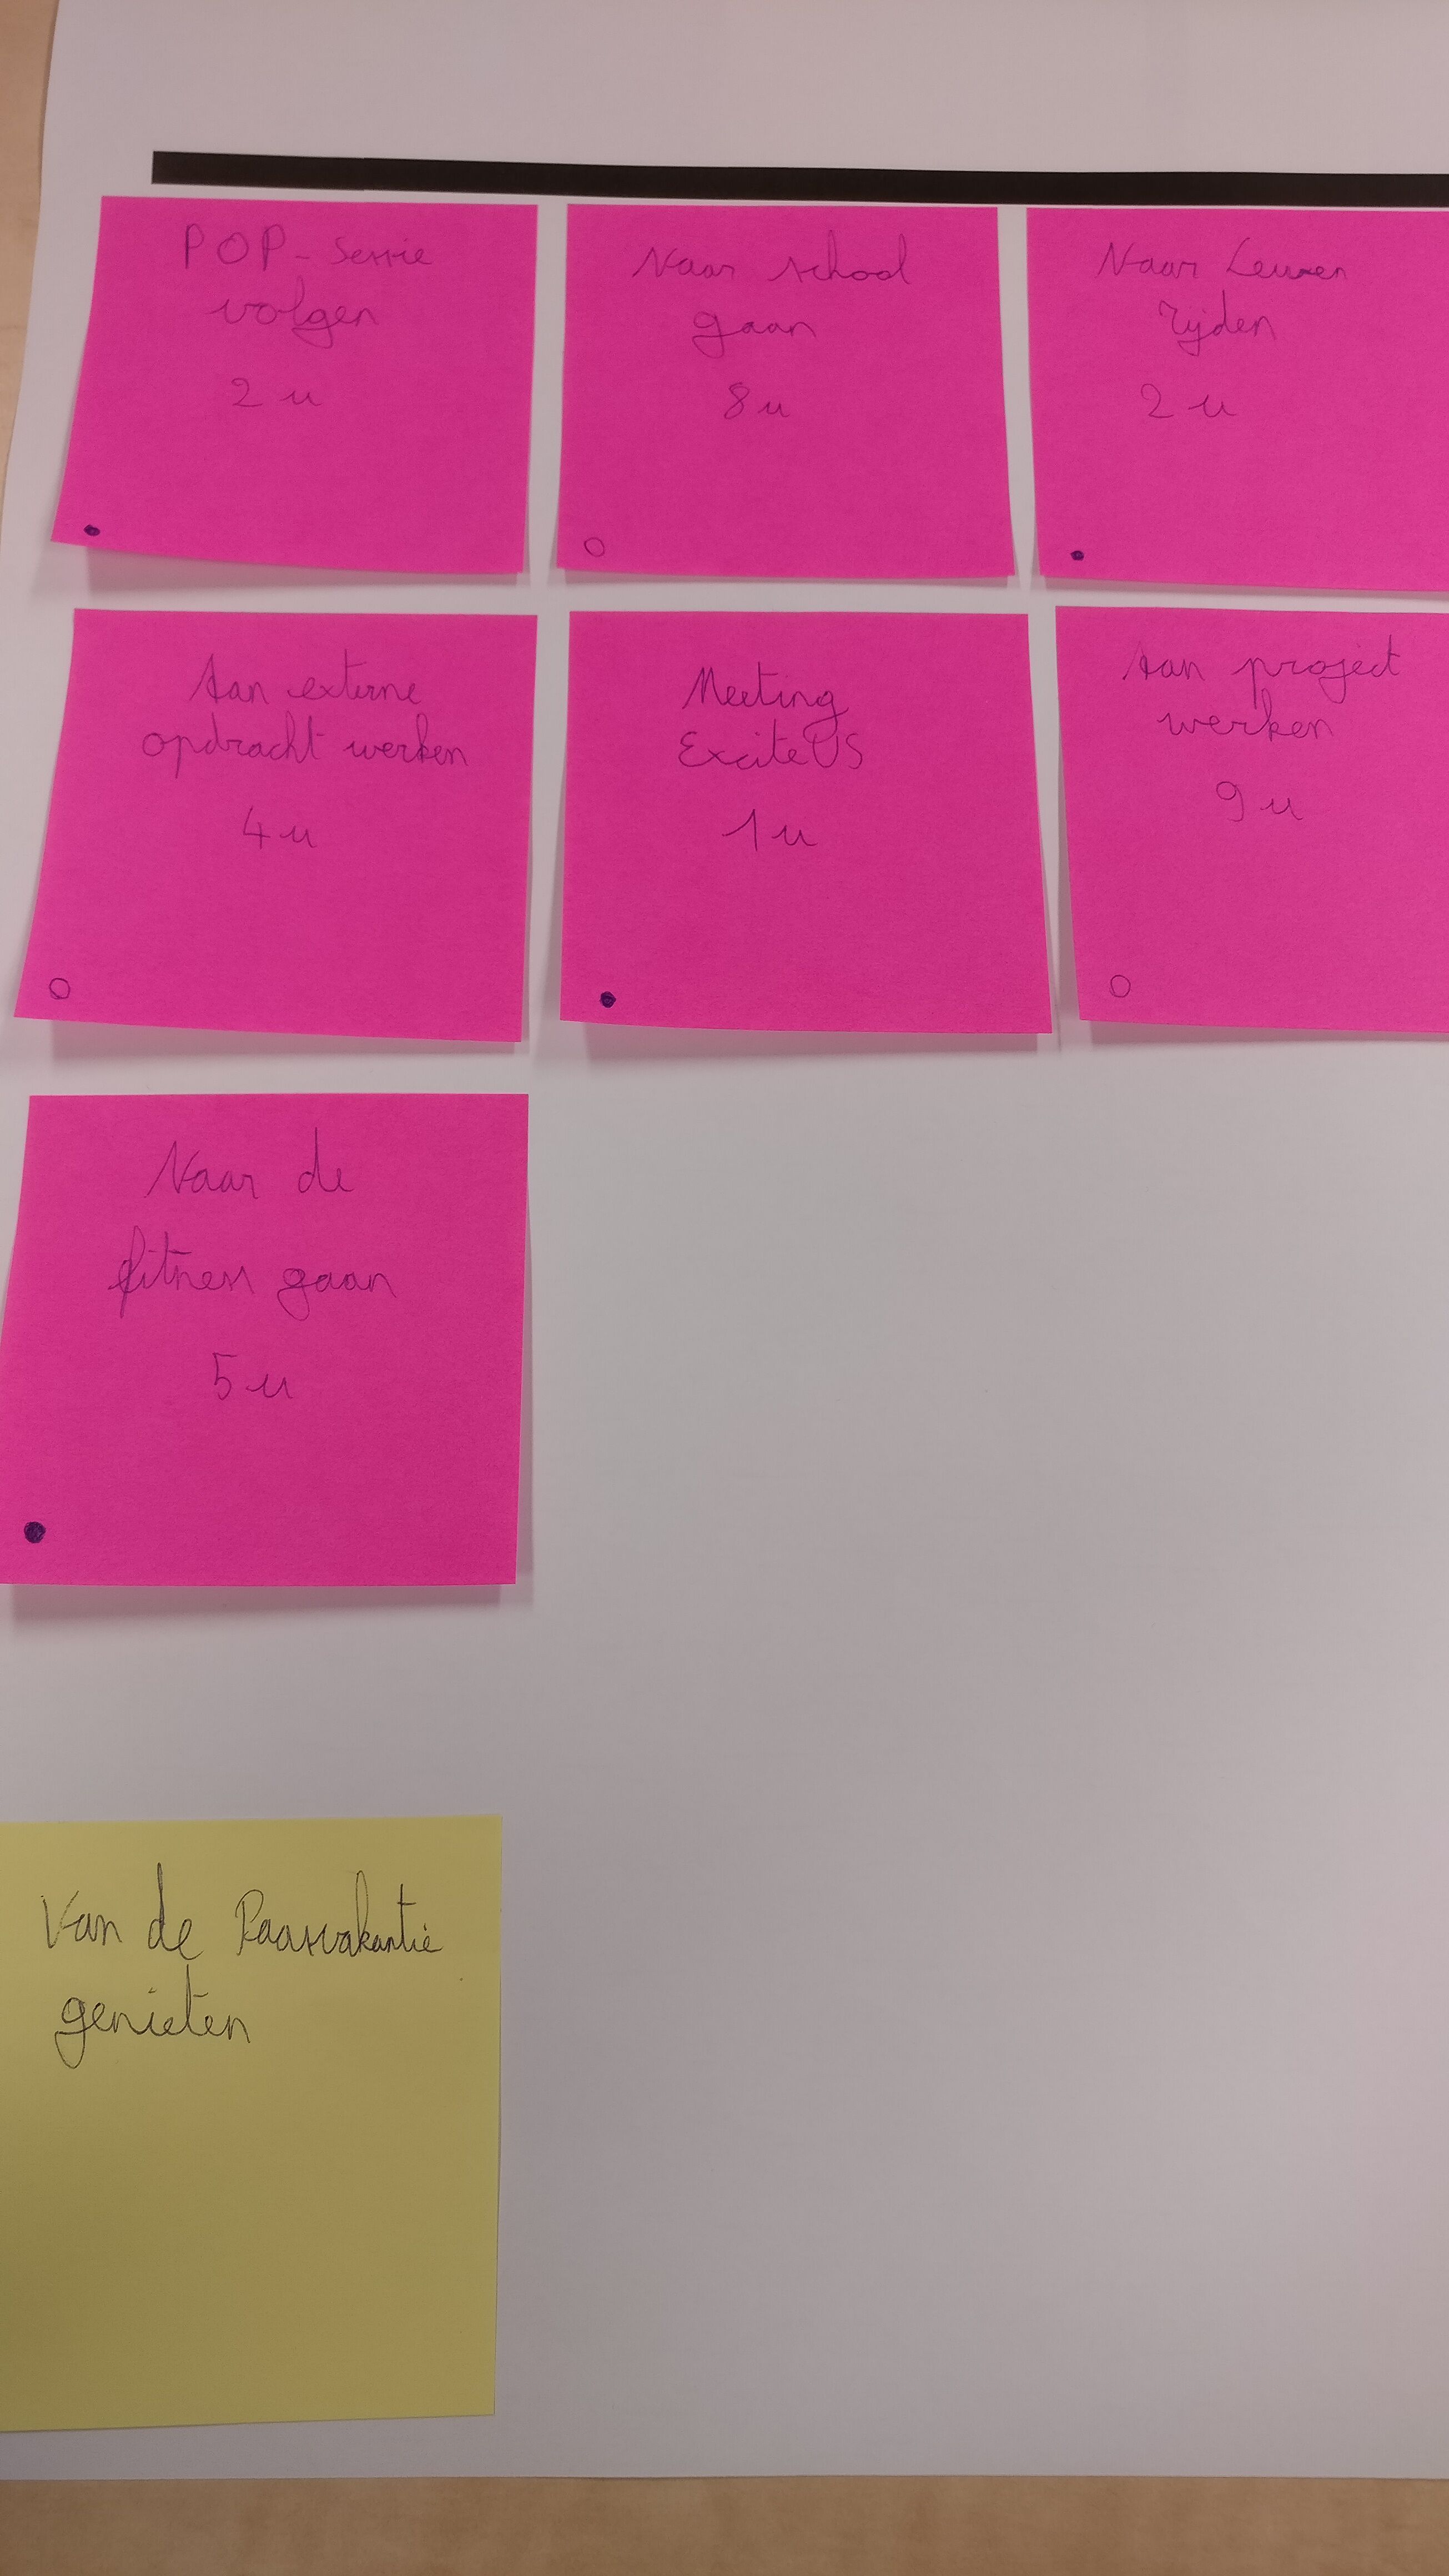 POP-Sessie
volgen
2 u
Naar school
gaan
8 u
Naar Leuven
rijden
2 u
Aan externe
opdracht werken
4 u
Meeting
ExciteUS
1 u
Aan project
werken
9 u
Naar de
fitness gaan
5 u
Van de Paasvakantie
genieten